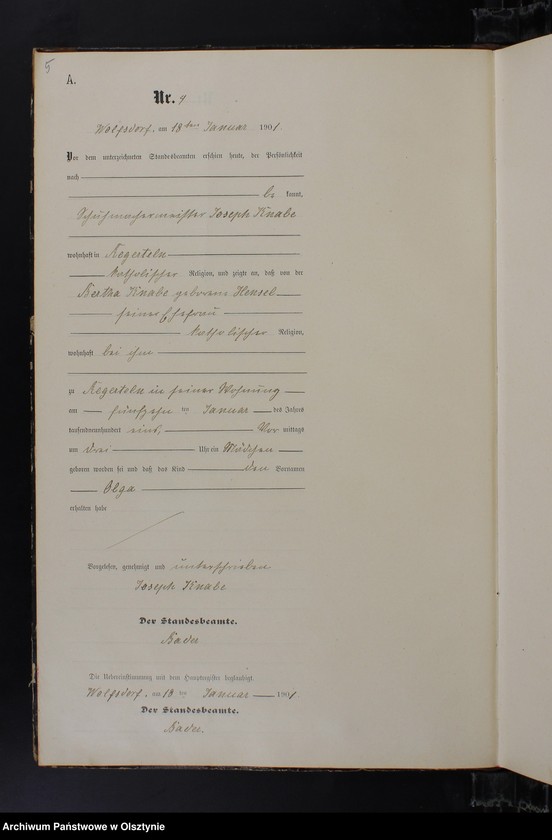 5
A.
Nr. 4
Wolfsdorf, am 18ten Januar 1901.
Vor dem unterzeichneten Standesbeamten erschien heute, der Persönlichkeit
nach
be kannt,
Schuhmachermeister Joseph Knabe
wohnhaft in Regerteln
katholischer Religion, und zeigte an, daß von der
Bertha Knabe geborene Hensel
seiner Ehefrau
katholischer Religion,
wohnhaft bei ihm
zu Regerteln in seiner Wohnung
am fünfzehn ten Januar des Jahres
tausendneunhundert eins, Vor mittags
um drei Uhr ein Mädchen
geboren worden sei und daß das Kind den Vornamen
Olga
erhalten habe
Vorgelesen, genehmigt und unterschrieben
Joseph Knabe
Der Standesbeamte.
Bader
Die Uebereinstimmung mit dem Hauptregister beglaubigt.
Wolfsdorf, am 18 ten Januar 1901
Der Standesbeamte.
Bader.
Archiwum Państwowe w Olsztynie